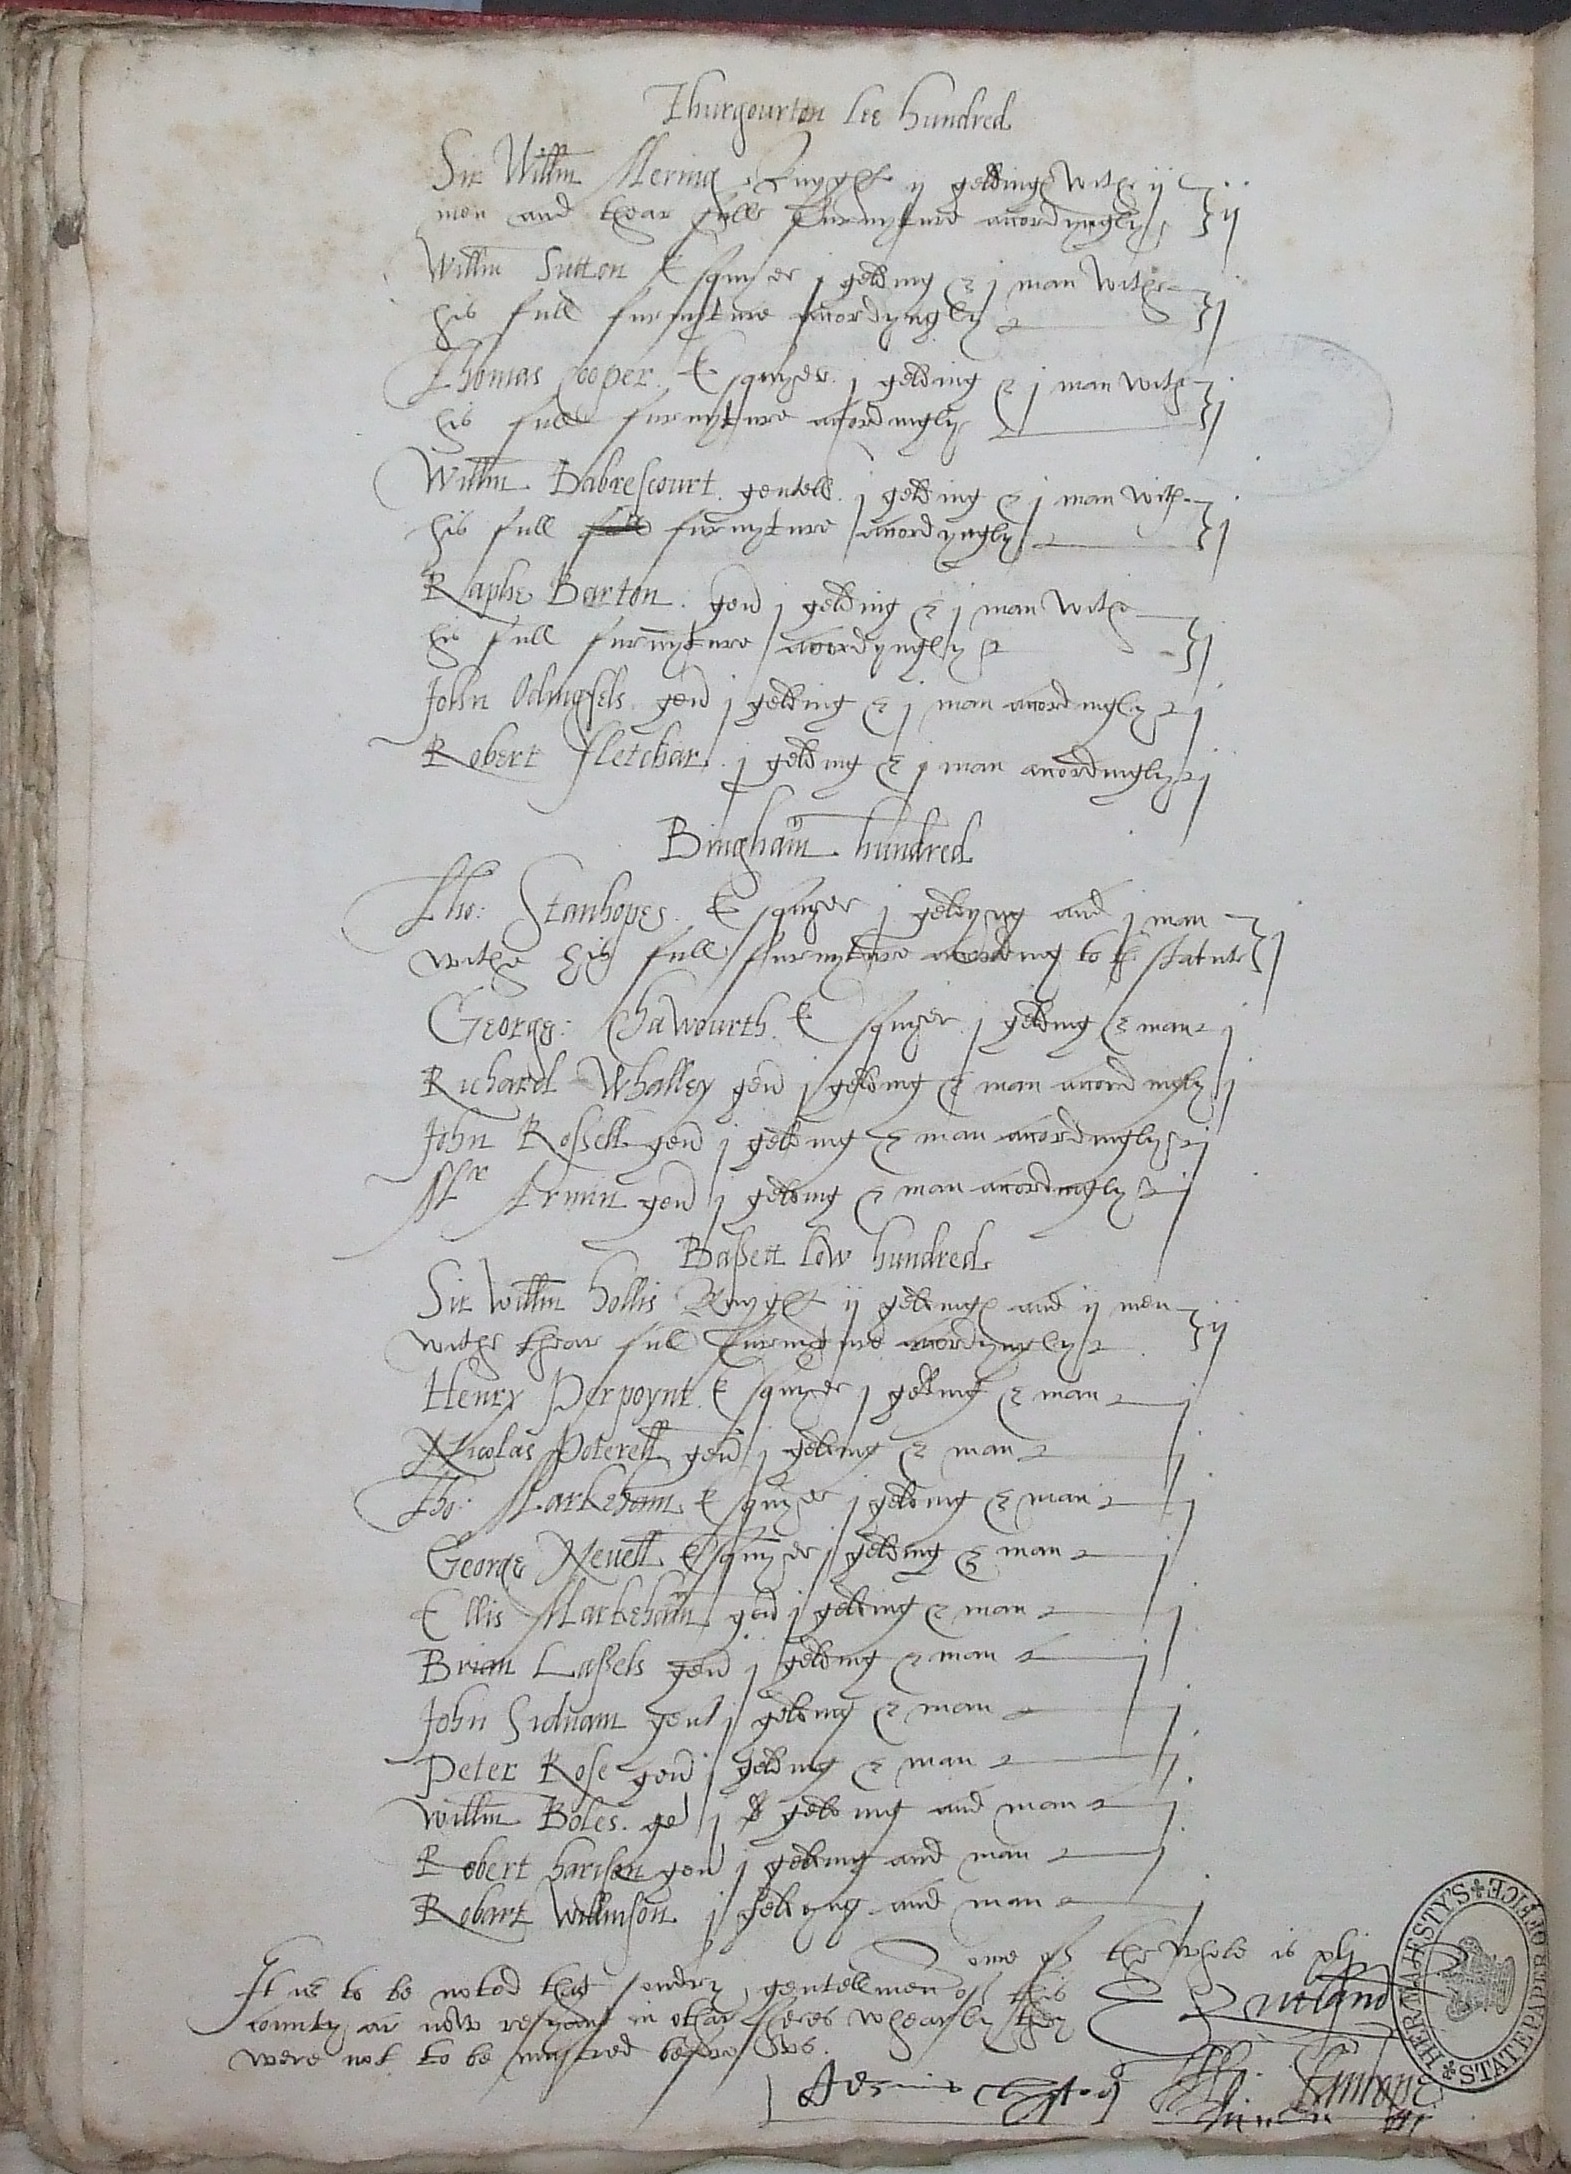 Thurgourton lee hundred
Sir Willm Mering Knyght ij geldings withe ij
men and thear full furnyture acordyngly ij
Willm Sutton Esquyer j gelding & j man withe
his full furnyture acordyngly j
Thomas Cooper Esquyer j gelding & j man withe
his full furnyture acordingly j
Willm Dabrescourt gentell j gelding & j man withe
his full full furnyture acordyngly j
Raphe Barton gen j gelding & j man withe
his full furnyture acordyngly j
John Odingsels gen j gelding & j man acordingly j
Robert Fletchar j gelding & j man acordingly j
Bingham hundred
Tho: Stanhopes Esquyer j geldyng and j man
withe his full furnyture acording to the statute j
George: Chawourth Esquyer j gelding & man j
Richard Whalley gen j gelding & man acordingly j
John Rossell gen j gelding & man acordingly j
Mr Ermin gen j gelding & man acordingly j
Bassett low hundred
Sir Willm hollis Knyght ij geldings and ij men
withe thear full furnyture acordyngly ij
Henry Perpoynt Esquyer j gelding & man j
Nicolas Poterell gen j gelding & man j
Tho: Markeham Esquyer j gelding & man j
George Nevell Esquyer j gelding & man j
Ellis Markeham gen j gelding & man j
Brian Lassels gen j gelding & man j
John Sidnam gent j gelding & man j
Peter Rose gen j gelding & man j
Willm Boles ge j gelding and man j
Robert harison gen j gelding and man j
Robart Wilkinson j geldyng and man j
some of the whole is xlj
It is to be noted that sondry gentellmen of this
county ar now resyant in othar sheres whearby they
were not to be mustred before us.
E Rutland
Tho: Stanhope
HER MAJESTY'S STATE PAPER OFFICE